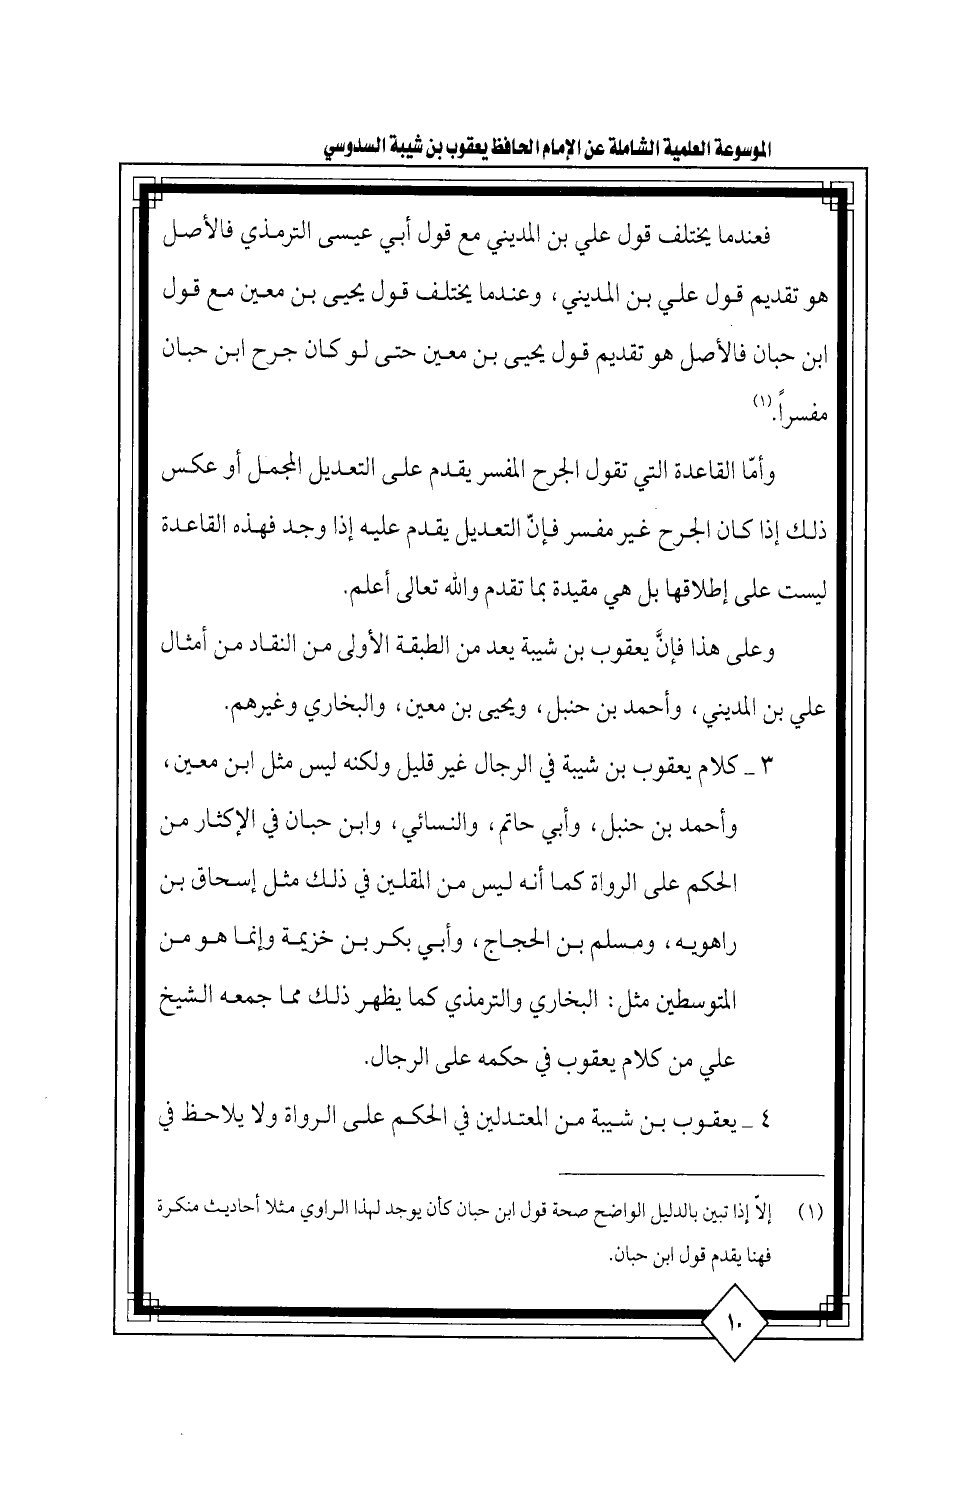 الموسوعة العلمية الشاملة عن الإمام الحافظ يعقوب بن شيبة السدوسي
فعندما يختلف قول علي بن المديني مع قول أبي عيسى الترمذي فالأصل
هو تقديم قول علي بن المديني، وعندما يختلف قول يحيى بن معين مع قول
ابن حبان فالأصل هو تقديم قول يحيى بن معين حتى لو كان جرح ابن حبان
مفسراً.(١)
وأمّا القاعدة التي تقول الجرح المفسر يقدم على التعديل المجمل أو عكس
ذلك إذا كان الجرح غير مفسر فإنّ التعديل يقدم عليه إذا وجد فهذه القاعدة
ليست على إطلاقها بل هي مقيدة بما تقدم والله تعالى أعلم.
وعلى هذا فإنَّ يعقوب بن شيبة يعد من الطبقة الأولى من النقاد من أمثال
علي بن المديني، وأحمد بن حنبل، ويحيى بن معين، والبخاري وغيرهم.
٣ ـ كلام يعقوب بن شيبة في الرجال غير قليل ولكنه ليس مثل ابن معين،
وأحمد بن حنبل، وأبي حاتم، والنسائي، وابن حبان في الإكثار من
الحكم على الرواة كما أنه ليس من المقلين في ذلك مثل إسحاق بن
راهويه، ومسلم بن الحجاج، وأبي بكر بن خزيمة وإنما هو من
المتوسطين مثل: البخاري والترمذي كما يظهر ذلك مما جمعه الشيخ
علي من كلام يعقوب في حكمه على الرجال.
٤ ـ يعقوب بن شيبة من المعتدلين في الحكم على الرواة ولا يلاحظ في
(١) إلاّ إذا تبين بالدليل الواضح صحة قول ابن حبان كأن يوجد لهذا الراوي مثلا أحاديث منكرة
فهنا يقدم قول ابن حبان.
١٠